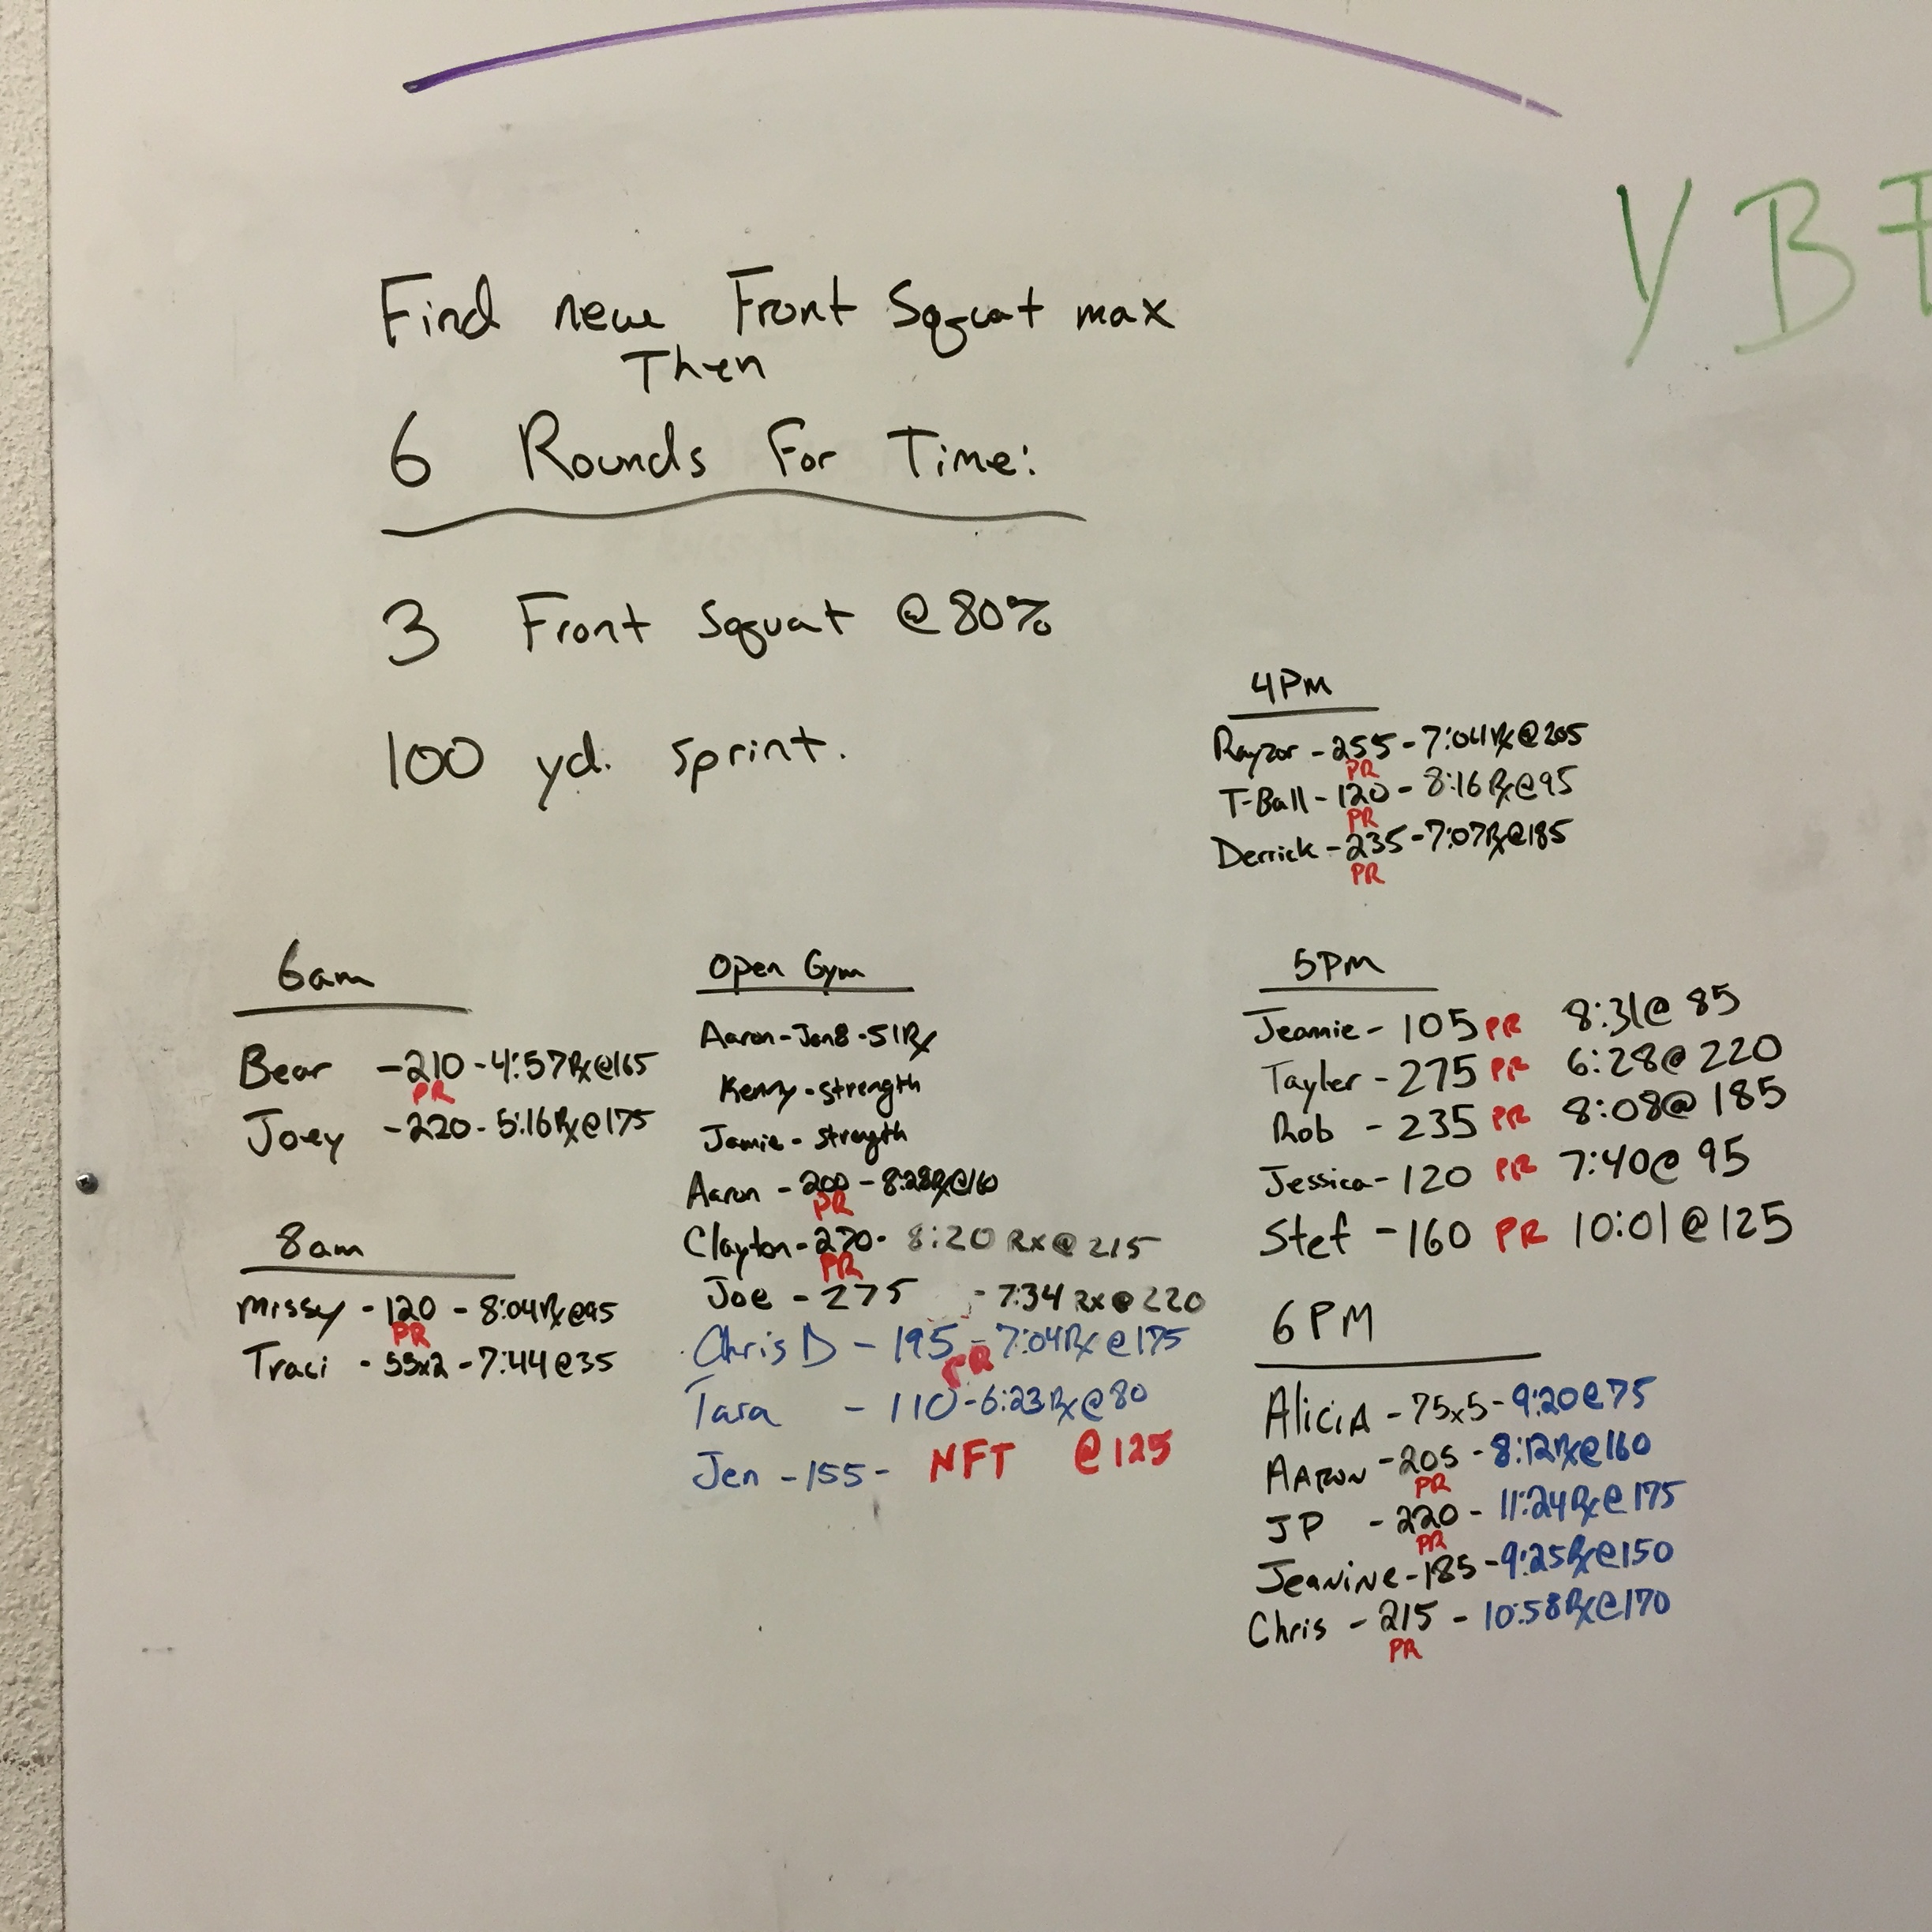 YB
Find new Front Squat max
Then
6 Rounds For Time:
3 Front Squat @ 80%
100 yd. sprint.
4PM
Rayzor - 255 - 7:04 Rx @ 205
PR
T-Ball - 120 - 8:16 Rx @ 95
PR
Derrick - 235 - 7:07 Rx @ 185
PR
6am
Bear - 210 - 4:57 Rx @ 165
PR
Joey - 220 - 5:16 Rx @ 175
8am
Missy - 120 - 8:04 Rx @ 95
PR
Traci - 55x2 - 7:44 @ 35
Open Gym
Aaron - Jan8 - 51 Rx
Kenny - strength
Jamie - strength
Aaron - 200 - 8:28 Rx @ 160
PR
Clayton - 270 - 8:20 Rx @ 215
PR
Joe - 275 - 7:34 Rx @ 220
Chris D - 195 - 7:04 Rx @ 175
PR
Tara - 110 - 6:23 Rx @ 80
Jen - 155 - NFT @ 125
5PM
Jeannie - 105 PR 8:31 @ 85
Tayler - 275 PR 6:28 @ 220
Rob - 235 PR 8:08 @ 185
Jessica - 120 PR 7:40 @ 95
Stef - 160 PR 10:01 @ 125
6PM
AliciA - 75x5 - 9:20 @ 75
AARON - 205 - 8:12 Rx @ 160
PR
JP - 220 - 11:24 Rx @ 175
PR
JeaNiNe - 185 - 9:25 Rx @ 150
Chris - 215 - 10:58 Rx @ 170
PR